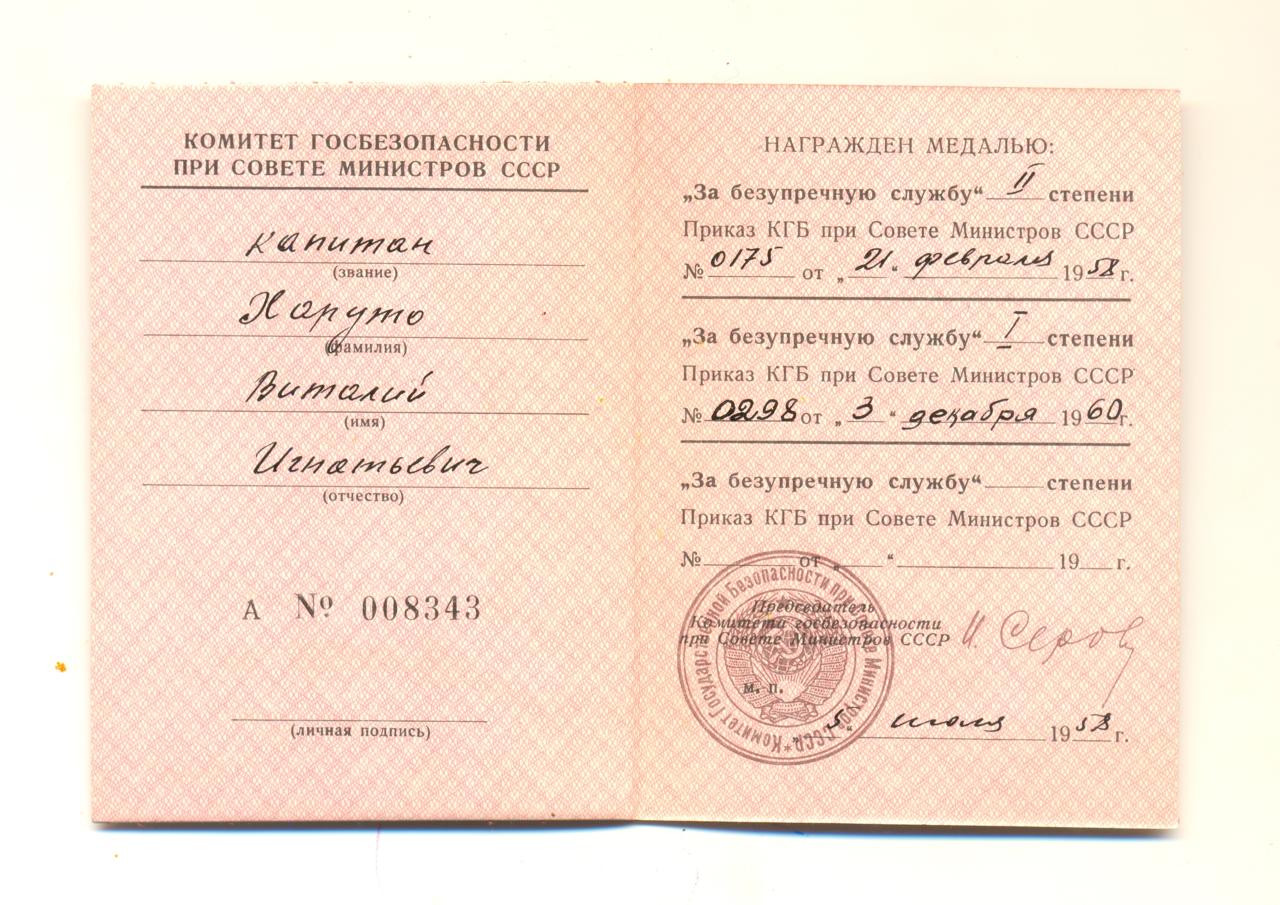 КОМИТЕТ ГОСБЕЗОПАСНОСТИ
ПРИ СОВЕТЕ МИНИСТРОВ СССР
капитан
(звание)
Харуто
(фамилия)
Виталий
(имя)
Игнатьевич
(отчество)
А № 008343
(личная подпись)
НАГРАЖДЕН МЕДАЛЬЮ:
„За безупречную службу“ II степени
Приказ КГБ при Совете Министров СССР
№ 0175 от „21“ февраля 1958 г.
„За безупречную службу“ I степени
Приказ КГБ при Совете Министров СССР
№ 0298 от „3“ декабря 1960 г.
„За безупречную службу“ степени
Приказ КГБ при Совете Министров СССР
№ от „ “ 19 г.
Председатель
Комитета госбезопасности
при Совете Министров СССР И. Серов
м. п.
„5“ июля 1958 г.
Комитет Государственной Безопасности при Совете Министров СССР *